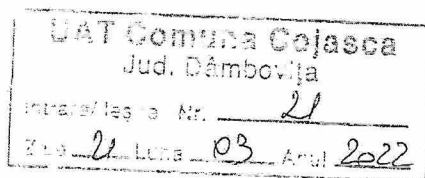 UAT Comuna Cojasca
Jud. Dâmbovița
Intrare/Ieșire Nr. 21
Ziua 21 Luna 03 Anul 2022